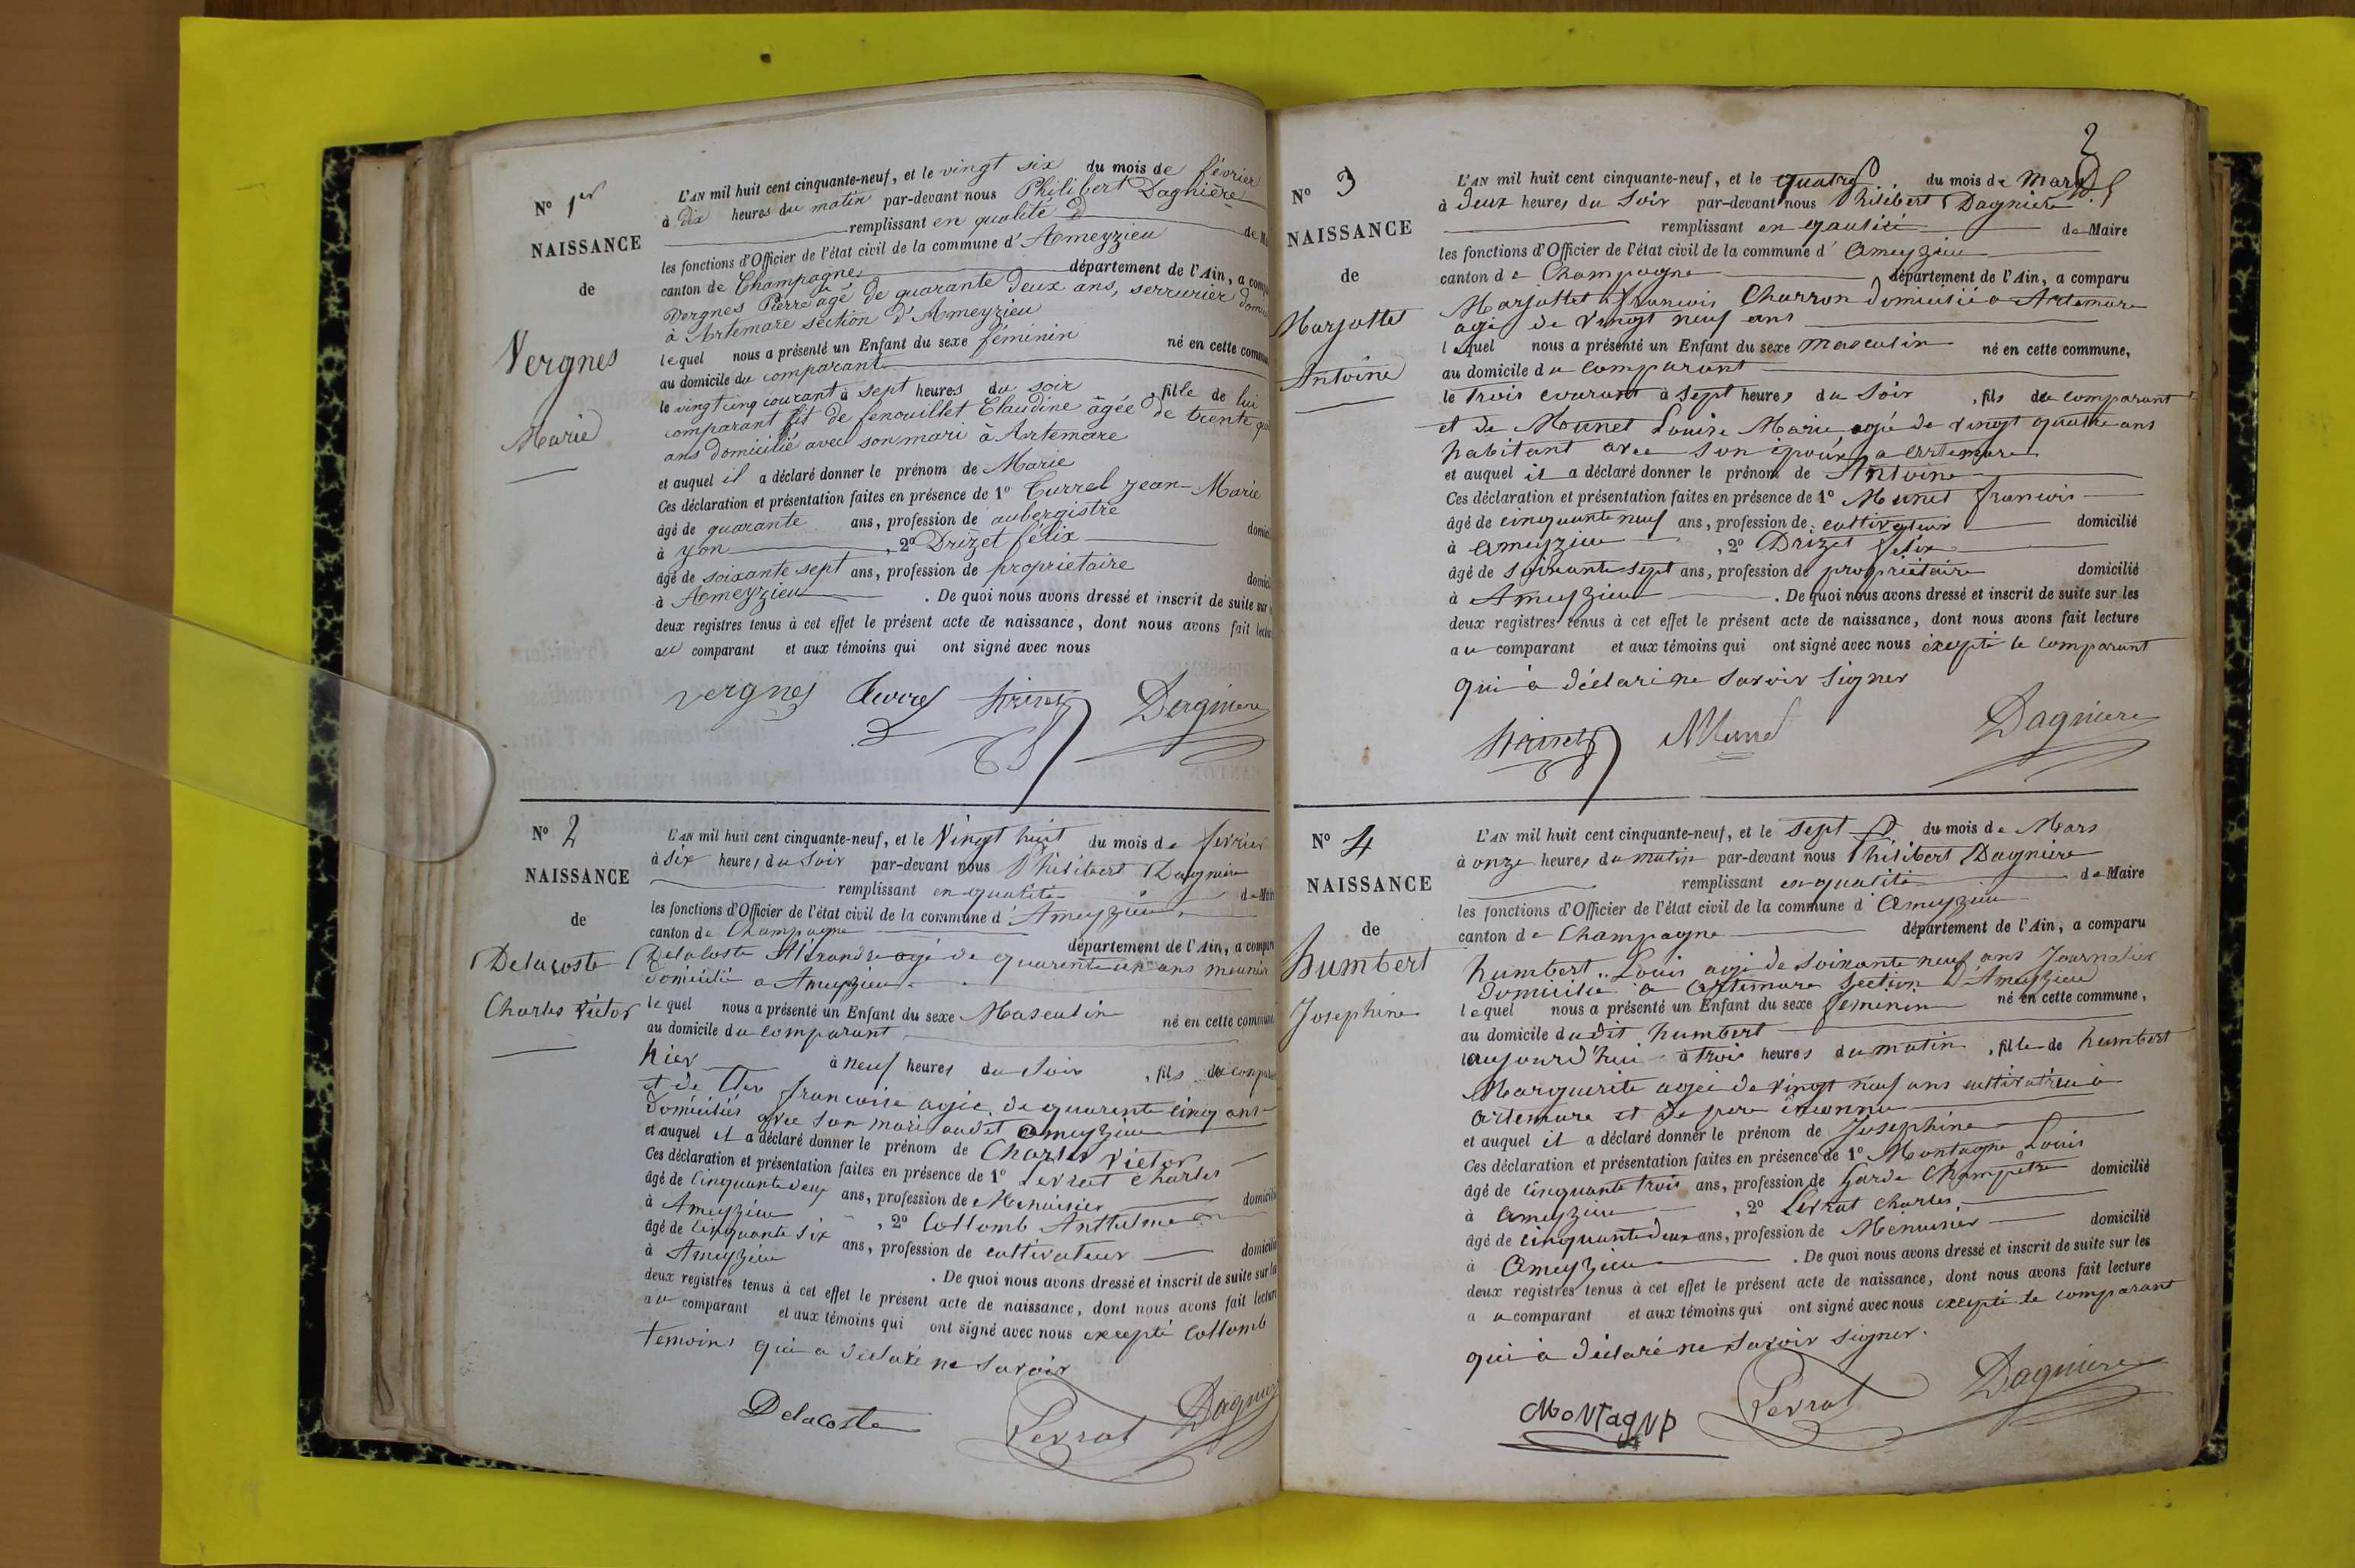 N° 1er
NAISSANCE
de
Vergnes
Marie
L'AN mil huit cent cinquante-neuf, et le vingt six du mois de février
à dix heures du matin par-devant nous Philibert Dagnière
remplissant en qualité d de M
les fonctions d'Officier de l'état civil de la commune d'Ameyzieu
canton de Champagne département de l'Ain, a comp
Vergnes Pierre âgé de quarante deux ans, serrurier domi
à Artemare section d'Ameyzieu
lequel nous a présenté un Enfant du sexe féminin né en cette commu
au domicile du comparant
le vingt cinq courant à sept heures du soir , fille de lui
comparant et de fenouillet Claudine âgée de trente
ans domicilié avec son mari à Artemare
et auquel il a déclaré donner le prénom de Marie
Ces déclaration et présentation faites en présence de 1° Currel jean-Marie
âgé de quarante ans, profession de aubergistre domici
à yon , 2° Drizet félix
âgé de soixante sept ans, profession de propriétaire domici
à Ameyzieu . De quoi nous avons dressé et inscrit de suite sur
deux registres tenus à cet effet le présent acte de naissance, dont nous avons fait lectu
au comparant et aux témoins qui ont signé avec nous
vergnes Dagniere
N° 2
NAISSANCE
de
Delacoste
Charles Victor
L'AN mil huit cent cinquante-neuf, et le Vingt huit du mois de fevrier
à six heures du Soir par-devant nous Philibert Dagniere
remplissant en qualité de Mair
les fonctions d'Officier de l'état civil de la commune d'Ameyzieu
canton de Champagne département de l'Ain, a compar
Delacoste Alexandre agé de quarente un ans meunier
domicilié a Ameyzieu
lequel nous a présenté un Enfant du sexe Masculin né en cette commune
au domicile du comparant
hier à neuf heures du Soir , fils du compar
et de francoise agée de quarente cinq ans
domiciliés avec son mari audit ameyzieu
et auquel il a déclaré donner le prénom de Charles Victor
Ces déclaration et présentation faites en présence de 1° Levrat Charles
âgé de Cinquante deux ans, profession de Menuisier domicili
à Ameyzieu , 2° Collomb Anthelme
âgé de Cinquante six ans, profession de cultivateur domicili
à Ameyzieu . De quoi nous avons dressé et inscrit de suite sur les
deux registres tenus à cet effet le présent acte de naissance, dont nous avons fait lecture
au comparant et aux témoins qui ont signé avec nous excepté Collomb
temoins qui a déclaré ne savoir
Delacoste Levrat Dagniere
2
N° 3
NAISSANCE
de
Marjollet
Antoine
L'AN mil huit cent cinquante-neuf, et le quatre du mois de Mars
à deux heures du Soir par-devant nous Philibert Dagniere
remplissant en qualité de Maire
les fonctions d'Officier de l'état civil de la commune d'Ameyzieu
canton de Champagne département de l'Ain, a comparu
Marjollet francois Charron domicilié a Artemare
agé de Vingt neuf ans
lequel nous a présenté un Enfant du sexe masculin né en cette commune,
au domicile du comparant
le trois courant à sept heures du Soir , fils du comparant
et de Munet Louise Marie, agée de vingt quatre ans
habitant avec son époux a artemare
et auquel il a déclaré donner le prénom de Antoine
Ces déclaration et présentation faites en présence de 1° Munet francois
âgé de cinquante neuf ans, profession de cultivateur domicilié
à ameyzieu , 2° Drizet félix
âgé de soixante sept ans, profession de propriétaire domicilié
à Ameyzieu . De quoi nous avons dressé et inscrit de suite sur les
deux registres tenus à cet effet le présent acte de naissance, dont nous avons fait lecture
au comparant et aux témoins qui ont signé avec nous excepté le comparant
qui à déclaré ne savoir signer
Munet Dagniere
N° 4
NAISSANCE
de
humbert
Josephine
L'AN mil huit cent cinquante-neuf, et le sept du mois de Mars
à onze heures du matin par-devant nous Philibert Dagniere
remplissant en qualité de Maire
les fonctions d'Officier de l'état civil de la commune d'Ameyzieu
canton de Champagne département de l'Ain, a comparu
humbert Louis agé de soixante neuf ans Journalier
domicilié a artemare section D'Ameyzieu
lequel nous a présenté un Enfant du sexe feminin né en cette commune,
au domicile dudit humbert
aujourd'hui à trois heures du matin , fille de humbert
Marguerite agée de vingt neuf ans cultivatrice à
artemare et de pere inconnu
et auquel il a déclaré donner le prénom de Josephine
Ces déclaration et présentation faites en présence de 1° Montagne Louis
âgé de cinquante trois ans, profession de Garde Champetre domicilié
à ameyzieu , 2° Levrat Charles
âgé de cinquante deux ans, profession de Menuisier domicilié
à Ameyzieu . De quoi nous avons dressé et inscrit de suite sur les
deux registres tenus à cet effet le présent acte de naissance, dont nous avons fait lecture
au comparant et aux témoins qui ont signé avec nous excepté le comparant
qui à déclaré ne savoir signer.
MoNTagNe Levrat Dagniere